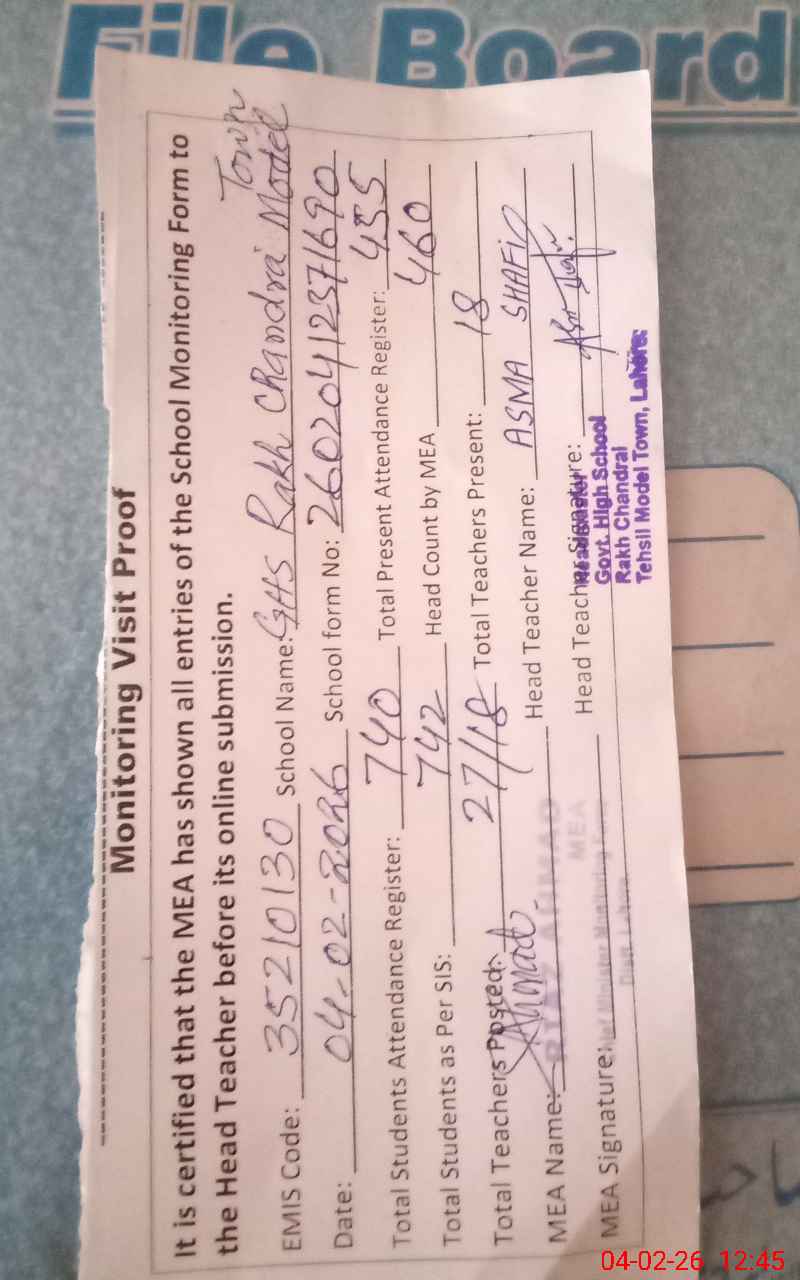 File Board
Monitoring Visit Proof
It is certified that the MEA has shown all entries of the School Monitoring Form to
the Head Teacher before its online submission.
EMIS Code: 35210130 School Name: GHS Rakh Chandra Model Town
Date: 04-02-2026 School form No: 26020412371690
Total Students Attendance Register: 740 Total Present Attendance Register: 455
Total Students as Per SIS: 742 Head Count by MEA 460
Total Teachers Posted: 27/18 Total Teachers Present: 18
MEA Name: Head Teacher Name: ASMA SHAFIQ
MEA Signature: Head Teacher Signature:
AHMAD
MEA
Headmaster
Govt. High School
Rakh Chandral
Tehsil Model Town, Lahore.
04-02-26 12:45